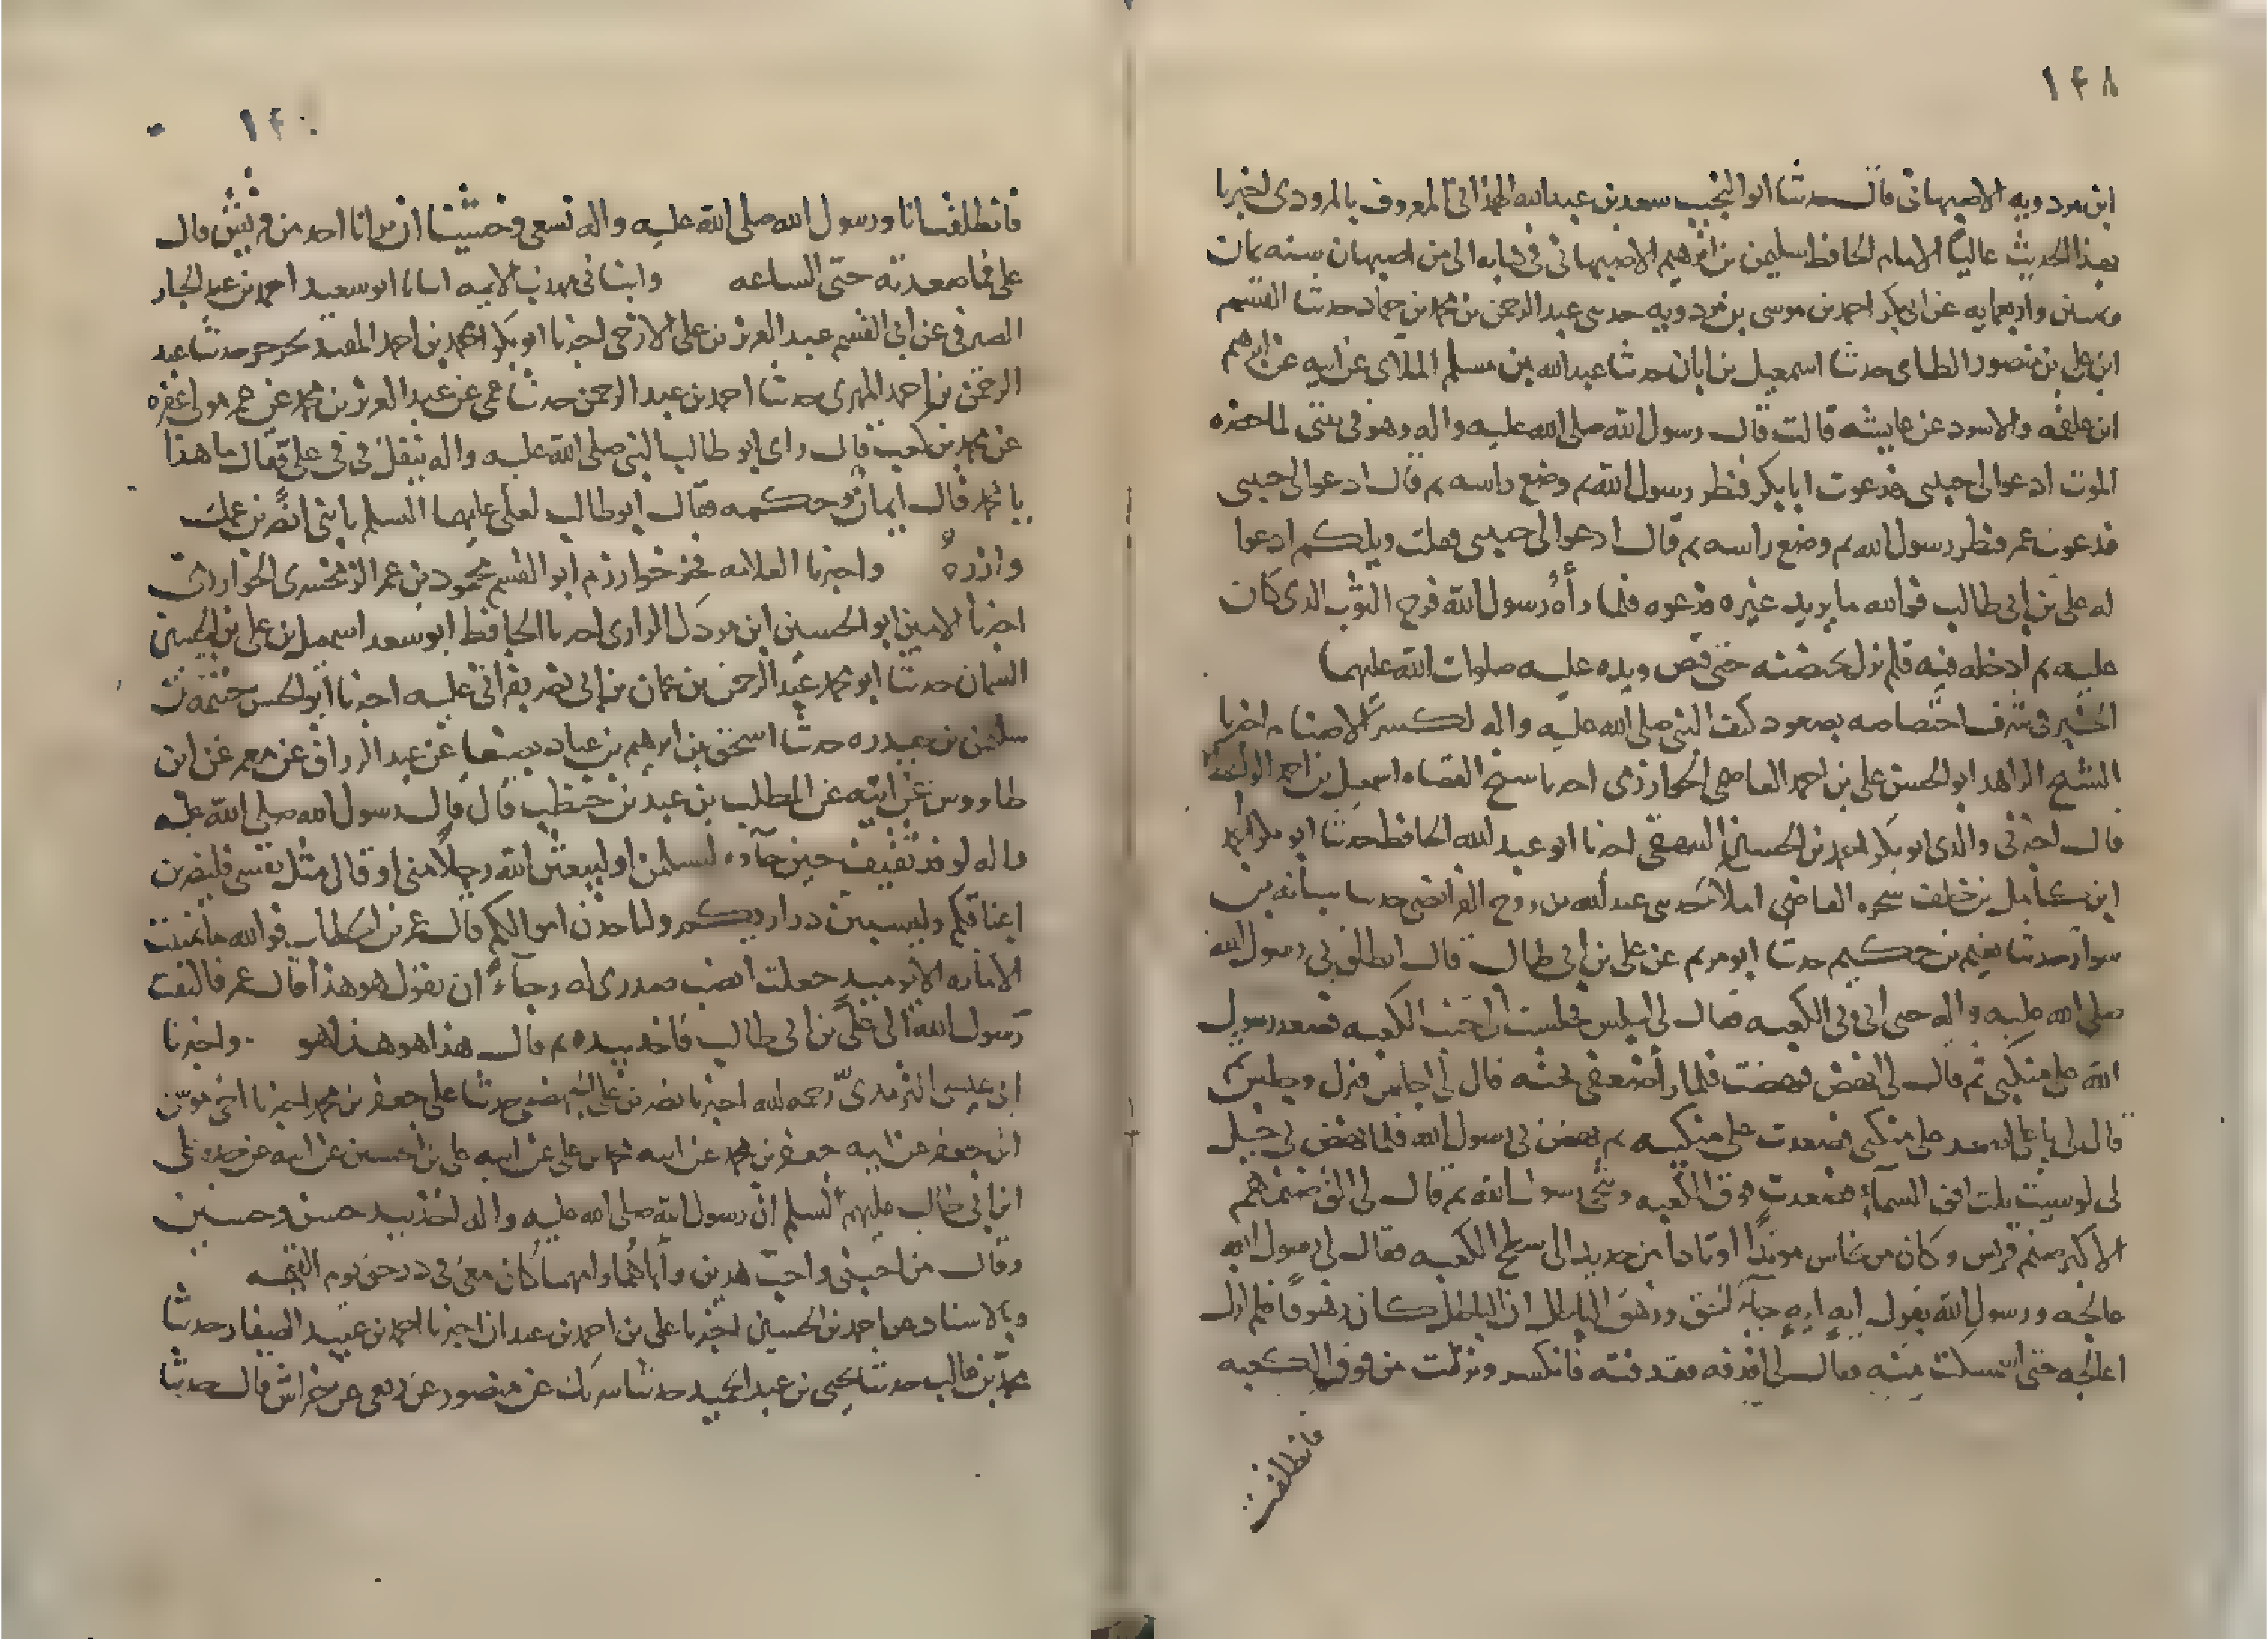 ١٤٨
ابن مردويه الاصبهانى قال حدثنا ابو النجيب سعد بن عبدالله الهمدانى المعروف بالمرودى اخبرنا
بهذا الحديث عاليًا الامام الحافظ سليمن بن ابرهيم الاصبهانى فى كتابه الى من اصبهان سنه ثمان
وثمنين واربعمايه عن ابى بكر احمد بن موسى بن مردويه حدثنى عبد الرحمن بن محمد بن حماد حدثنا القسم
ابن على بن منصور الطاى حدثنا اسمعيل بن ابان حدثنا عبدالله بن مسلم الملاى عن ابيه عن ابرهيم
ابن علقمه والاسود عن عايشه قالت قال رسول الله صلى الله عليه واله وهو فى بيتى لما حضره
الموت ادعوا لى حبيبى فدعوت ابا بكر فنظر رسول الله ثم وضع راسه ثم قال ادعوا لى حبيبى
فدعوت عمر فنظر رسول الله ثم وضع راسه ثم قال ادعوا لى حبيبى فقلت ويلكم ادعوا
له على بن ابى طالب فوالله ما يريد غيره فدعوه فلما رأه رسول الله فرج الثوب الذى كان
عليه ثم ادخله فيه فلم يزل يحتضنه حتى قبض ويده عليه صلوات الله عليهما
فى شرف اختصاصه بصعود كتف النبى صلى الله عليه واله لكسر الاصنام اخبرنا
الشيخ الزاهد ابو الحسن على بن احمد العاصمى الخوارزمى اخبرنا شيخ القضاه اسمعيل بن احمد الواعظ
قال اخبرنى والدى ابو بكر احمد بن الحسين البيهقى اخبرنا ابو عبد الله الحافظ حدثنا ابو بكر احمد
ابن كامل بن خلف القاضى املاءً حدثنى عبد الله بن روح الفرائضى حدثنا شبابه بن
سوار حدثنا نعيم بن حكيم حدثنا ابو مريم عن على بن ابى طالب قال انطلق بى رسول الله
صلى الله عليه واله حتى اتى بى الكعبه فقال لى اجلس فجلست الى جنب الكعبه فصعد رسول
الله على منكبى ثم قال لى انهض فنهضت فلما رأى ضعفى تحته قال لى اجلس فنزل وجلس ثم
قال لى يا على اصعد على منكبى فصعدت على منكبيه ثم نهض بى رسول الله فلما نهض بى خيل
لى لو شيت نلت افق السمآء فصعدت فوق الكعبه وتنحى رسول الله ثم قال لى الق صنمهم
الاكبر صنم قريش وكان من نحاس موتدًا اوتادا من حديد الى سطح الكعبه فقال لى رسول الله
عالجه ورسول الله يقول ايهٍ ايهٍ جآء الحق وزهق الباطل ان الباطل كان زهوقًا فلم ازل
اعالجه حتى استمكنت منه فقال لى اقذفه فقذفته فانكسر ونزلت من فوق الكعبه
فانطلقت
١٤٠
فانطلقت انا ورسول الله صلى الله عليه واله نسعى وخشينا ان يرانا احد من قريش قال
على فما صعدته حتى الساعه وانبانى مهذب الايمه انبانا ابو سعيد احمد بن عبد الجبار
الصيرفى عن ابى القسم عبد العزيز بن على الازجى اخبرنا ابو بكر محمد بن احمد المفيد حدثنا عبد
الرحمن بن احمد المهرى حدثنا احمد بن عبد الرحمن حدثنا عمى عن عبد العزيز بن محمد عن عمر مولى غفره
عن محمد بن كعب قال راى ابو طالب النبى صلى الله عليه واله يتفل فى فى على فقال ما هذا
يا محمد قال ايمان وحكمه فقال ابو طالب لعلى عليهما السلم يا بنى انصر بن عمك
وازره واخبرنا العلامه فخر خوارزم ابو القسم محمود بن عمر الزمخشرى الخوارزمى
اخبرنا الامين ابو الحسين ابن مردك الرازى اخبرنا الحافظ ابو سعد اسمعيل بن على بن الحسين
السمان حدثنا ابو محمد عبد الرحمن بن عثمان بن ابى نصر بقراتى عليه اخبرنا ابو الحسن خيثمه بن
سليمن بن حيدره حدثنا اسحق بن ابرهيم بن عباد بصنعا عن عبد الرزاق عن معمر عن ابن
طاووس عن ابيه عن المطلب بن عبد بن حنطب قال قال رسول الله صلى الله عليه
واله لوفد ثقيف حين جآءوه لتسلمن او ليبعثن الله رجلاً منى او قال مثل نفسى فليضربن
اعناقكم وليسبين ذراريكم ولياخذن اموالكم قال عمر بن الخطاب فوالله ما تمنيت
الاماره الا يوميذ جعلت انصب صدرى له رجآء ان يقول هو هذا قال عمر فالتفت
رسول الله الى على بن ابى طالب فاخذ بيده ثم قال هذا هو هذا هو واخبرنا
ابى عيسى الترمذىّ رحمه الله اخبرنا نصر بن على الجهضمى حدثنا على بن جعفر بن محمد اخبرنا اخى موسى
ابن جعفر عن ابيه جعفر بن محمد عن ابيه محمد بن على عن ابيه على بن الحسين عن ابيه عن جده على
ابن ابى طالب عليهم السلم ان رسول الله صلى الله عليه واله اخذ بيد حسن وحسين
وقال من احبنى واحب هذين وأباهما وامهما كان معى فى درجتى يوم القيمه
وبالاسناد عن احمد بن الحسين اخبرنا على بن احمد بن عبدان اخبرنا احمد بن عبيد الصفار حدثنا
محمد بن غالب حدثنا يحيى بن عبد الحميد حدثنا شريك عن منصور عن ربعى عن خراش قال حدثنا